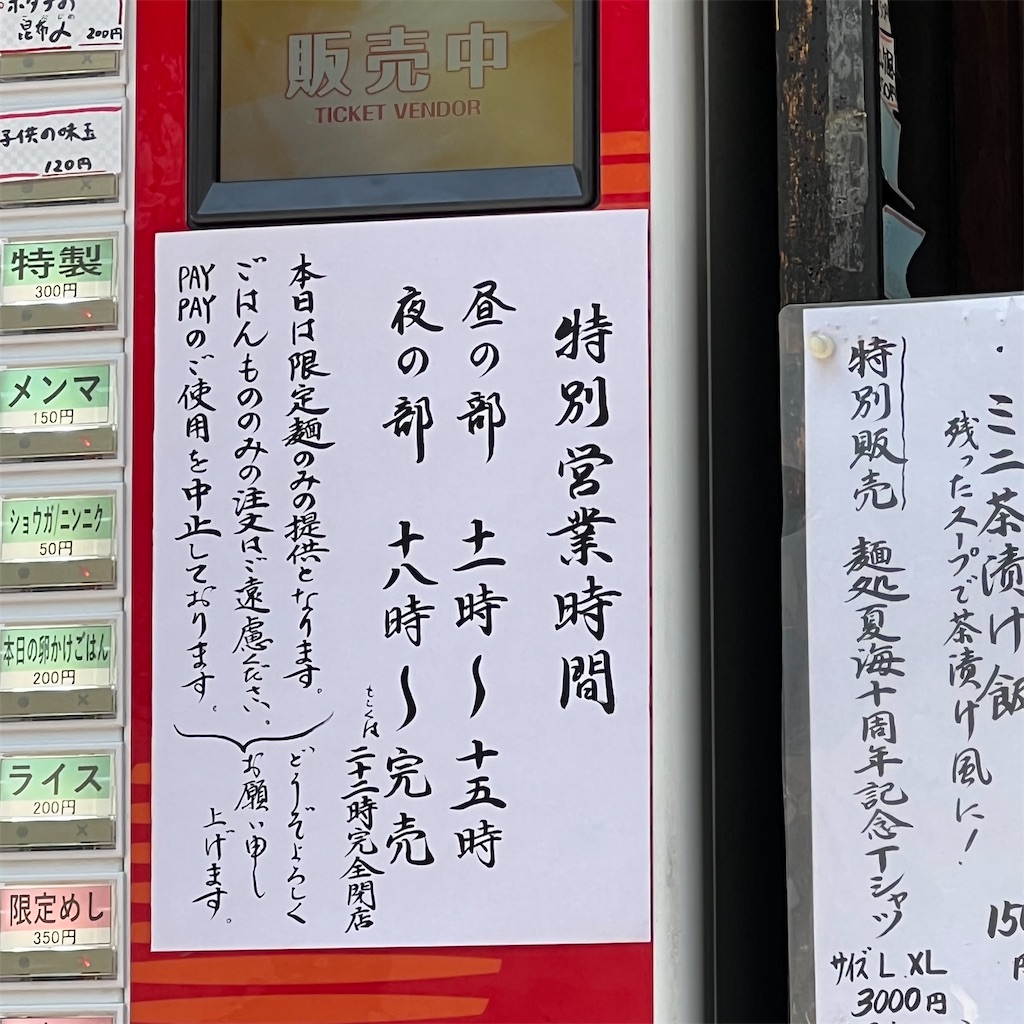 ホタテの
昆布〆
200円
子供の味玉
120円
特製
300円
メンマ
150円
ショウガ/ニンニク
50円
本日の卵かけごはん
200円
ライス
200円
限定めし
350円
販売中
TICKET VENDOR
特別営業時間
昼の部 十一時〜十五時
夜の部 十八時〜完売
もしくは二十二時完全閉店
本日は限定麺のみの提供となります。
ごはんもののみの注文はご遠慮ください。
PAY PAYのご使用を中止しております。
どうぞよろしく
お願い申し
上げます。
ミニ茶漬け飯
残ったスープで茶漬け風に!
特別販売 麺処夏海十周年記念Tシャツ
サイズ L XL
3000円